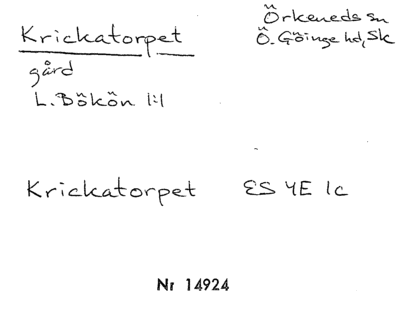 Krickatorpet
Örkeneds sn
Ö. Göinge hd, Sk
gård
L. Bökön 1:1
Krickatorpet ES 4E 1c
Nr 14924